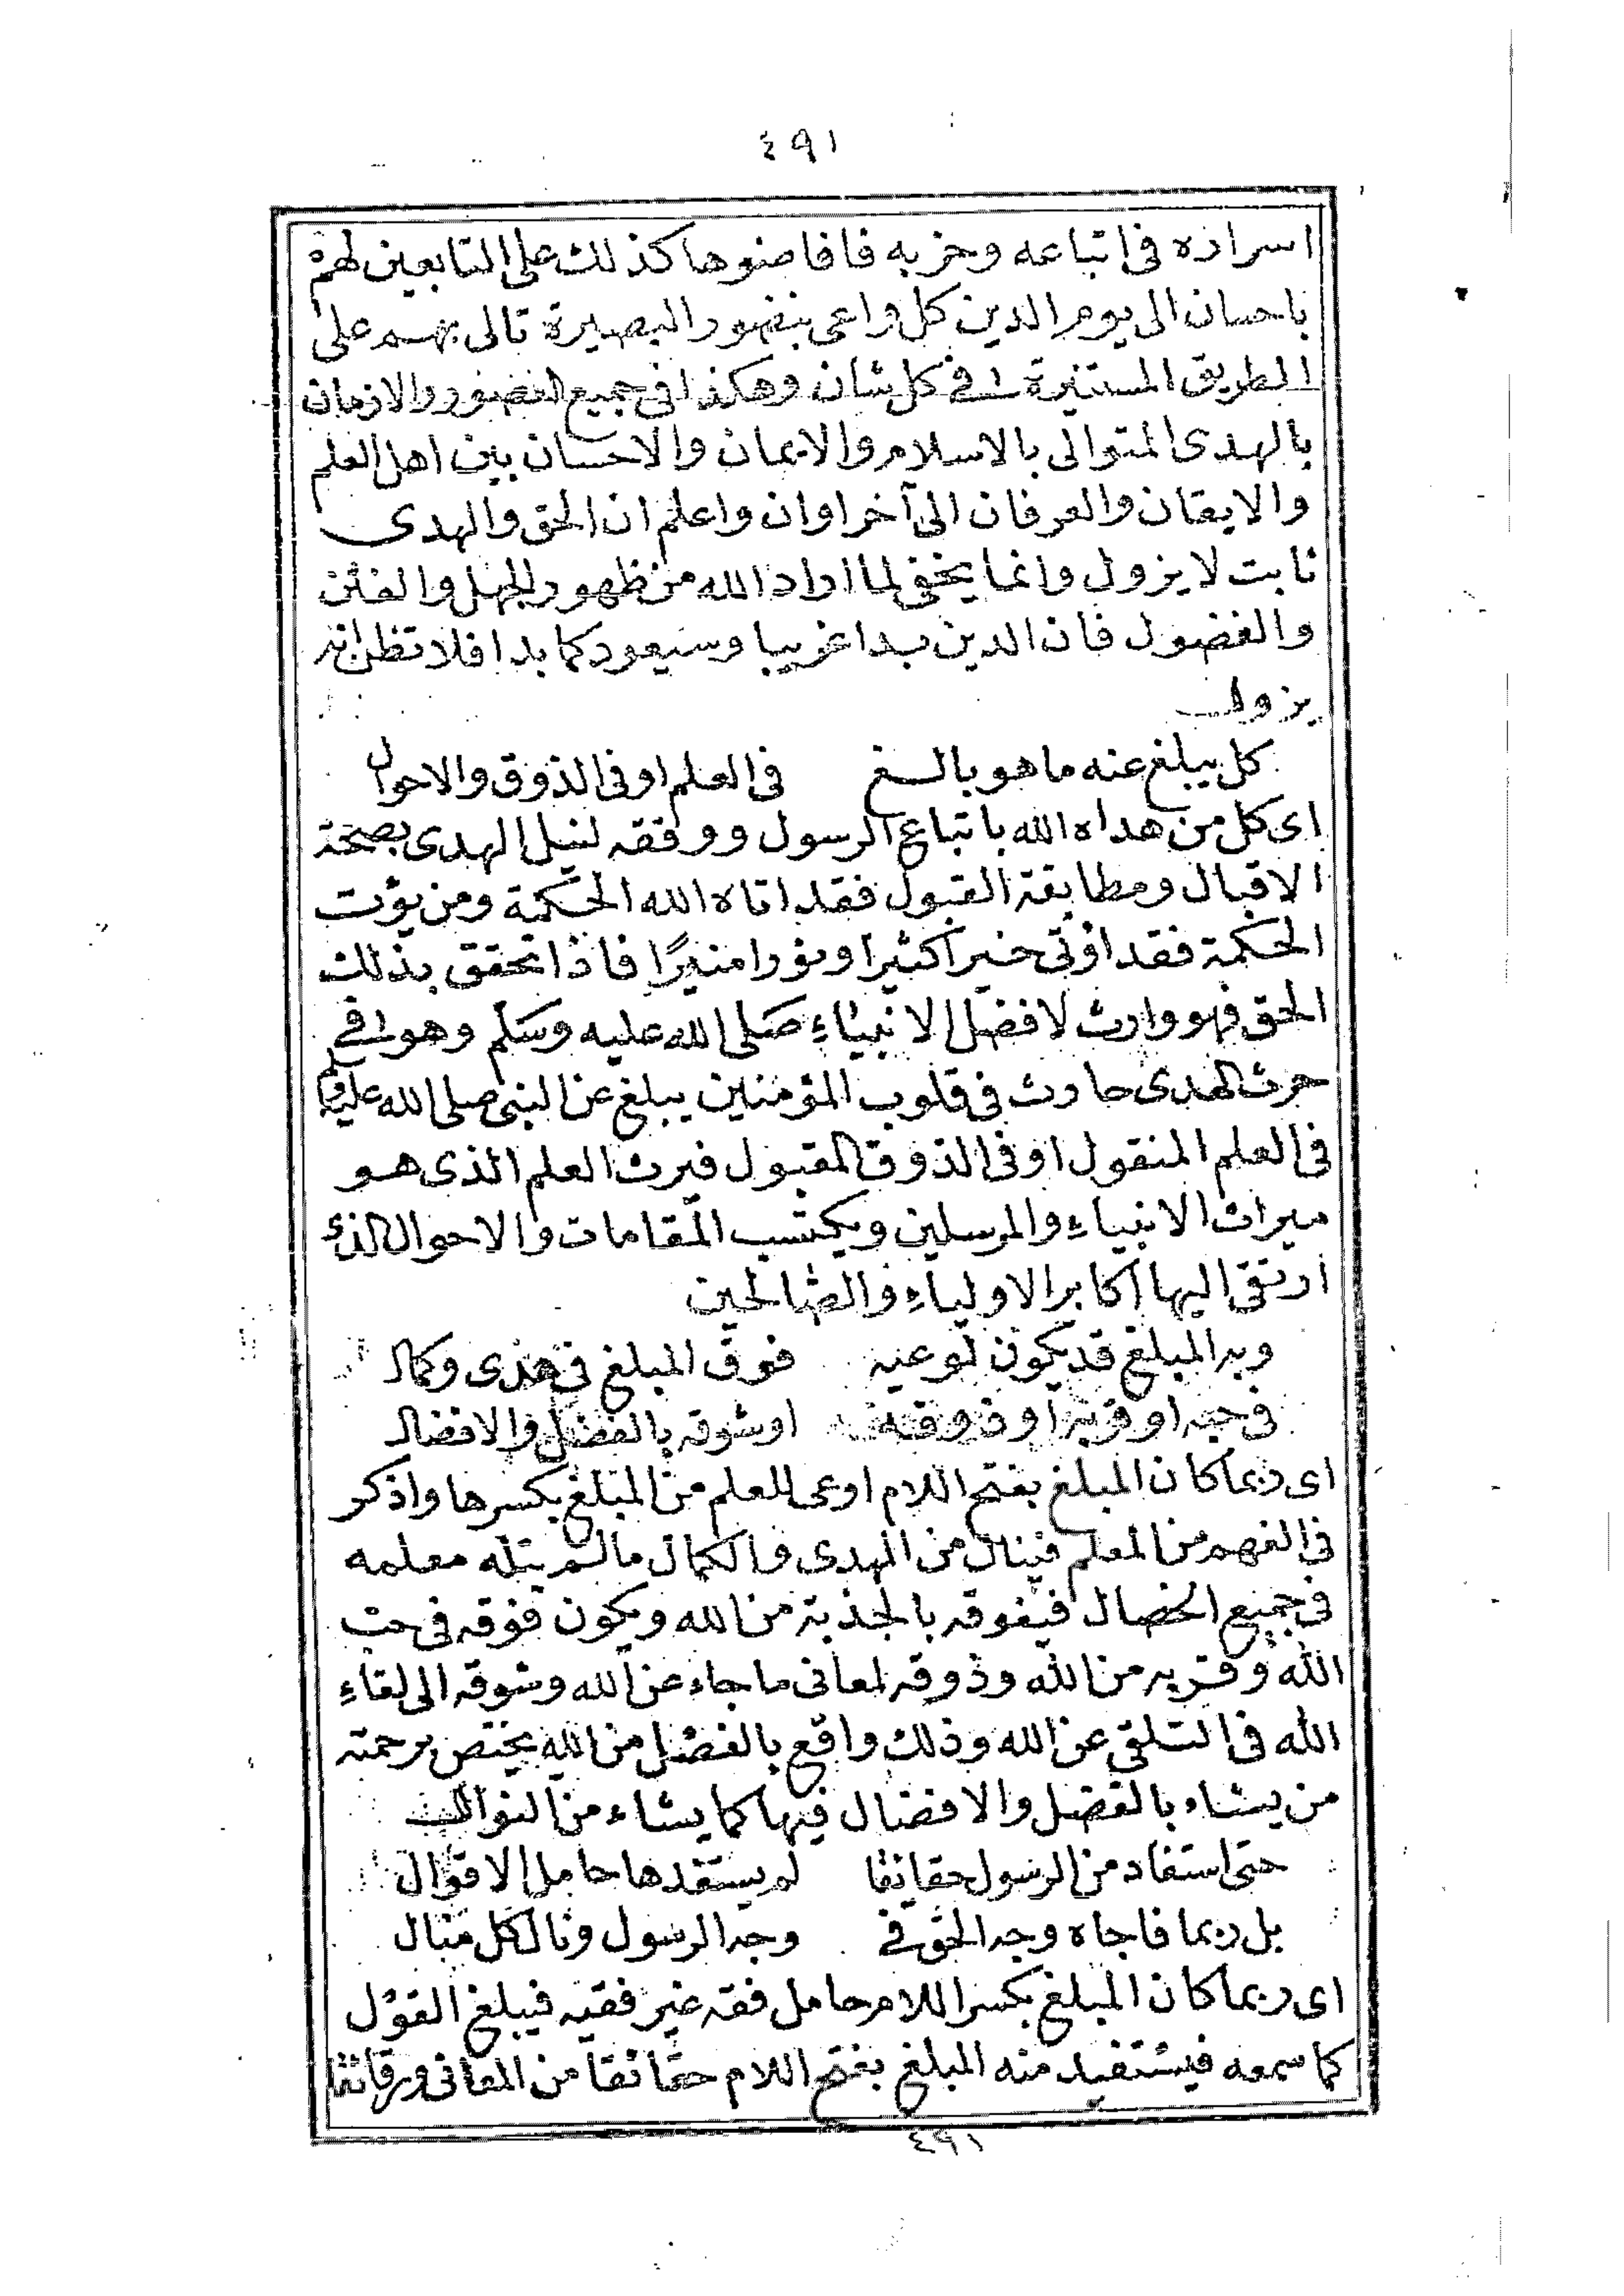 ٤٩١
اسراره فى اتباعه وحزبه فافاضوها كذلك على التابعين لهم
باحسان الى يوم الدين كل واعى بنضور البصيرة تالى بهم على
الطريق المستنيرة فى كل شان وهكذا فى جميع العصور والازمان
بالهدى المتوالى بالاسلام والايمان والاحسان بين اهل العلم
والايقان والعرفان الى آخر اوان واعلم ان الحق والهدى
ثابت لا يزول وانما يخفى لما اراد الله من ظهور الجهل والفتن
والفضول فان الدين بدا غريبا وسيعود كما بدا فلا تظن انه
يزول
كل يبلغ عنه ما هو بالغ فى العلم او فى الذوق والاحوال
اى كل من هداه الله باتباع الرسول ووفقه لنيل الهدى بصحة
الاقبال ومطابقة القبول فقد اتاه الله الحكمة ومن يؤت
الحكمة فقد اوتى خيرا كثيرا ونورا منيرًا فاذا تحقق بذلك
الحق فهو وارث لافضل الانبياء صلى الله عليه وسلم وهو فى
حرث الهدى حارث فى قلوب المؤمنين يبلغ عن النبى صلى الله عليه وسلم
فى العلم المنقول او فى الذوق المقبول فيرث العلم الذى هو
ميراث الانبياء والمرسلين ويكتسب المقامات والاحوال الذى
ارتقى اليها اكابر الاولياء والصالحين
وبه المبلغ قد يكون لوعيه فوق المبلغ فى هدى وكمال
فى حبه او قربه او ذوقه او شوقه بالفضل والافضال
اى ربما كان المبلغ بفتح اللام اوعى للعلم من المبلغ بكسرها واذكر
فى الفهم من المعلم فينال من الهدى والكمال ما لم ينله معلمه
فى جميع الخصال فيفوقه بالجذبة من الله ويكون فوقه فى حب
الله وقربه من الله وذوقه لمعانى ما جاء عن الله وشوقه الى لقاء
الله فى التلقى عن الله وذلك واقع بالفضل من الله يختص برحمته
من يشاء بالفضل والافضال فيها كما يشاء من النوال
حتى استفاد من الرسول حقايقا لم يستفدها حامل الاقوال
بل ربما فاجاه وجه الحق فى وجه الرسول ونال كل منال
اى ربما كان المبلغ بكسر اللام حامل فقه غير فقيه فيبلغ القول
كما سمعه فيستفيد منه المبلغ بفتح اللام حقائقا من المعانى ورقائقا
٤٩١